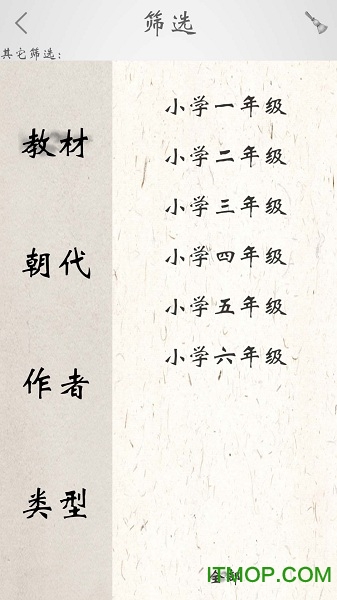 筛选
其它筛选：
教材
朝代
作者
类型
小学一年级
小学二年级
小学三年级
小学四年级
小学五年级
小学六年级
全部
ITMOP.COM